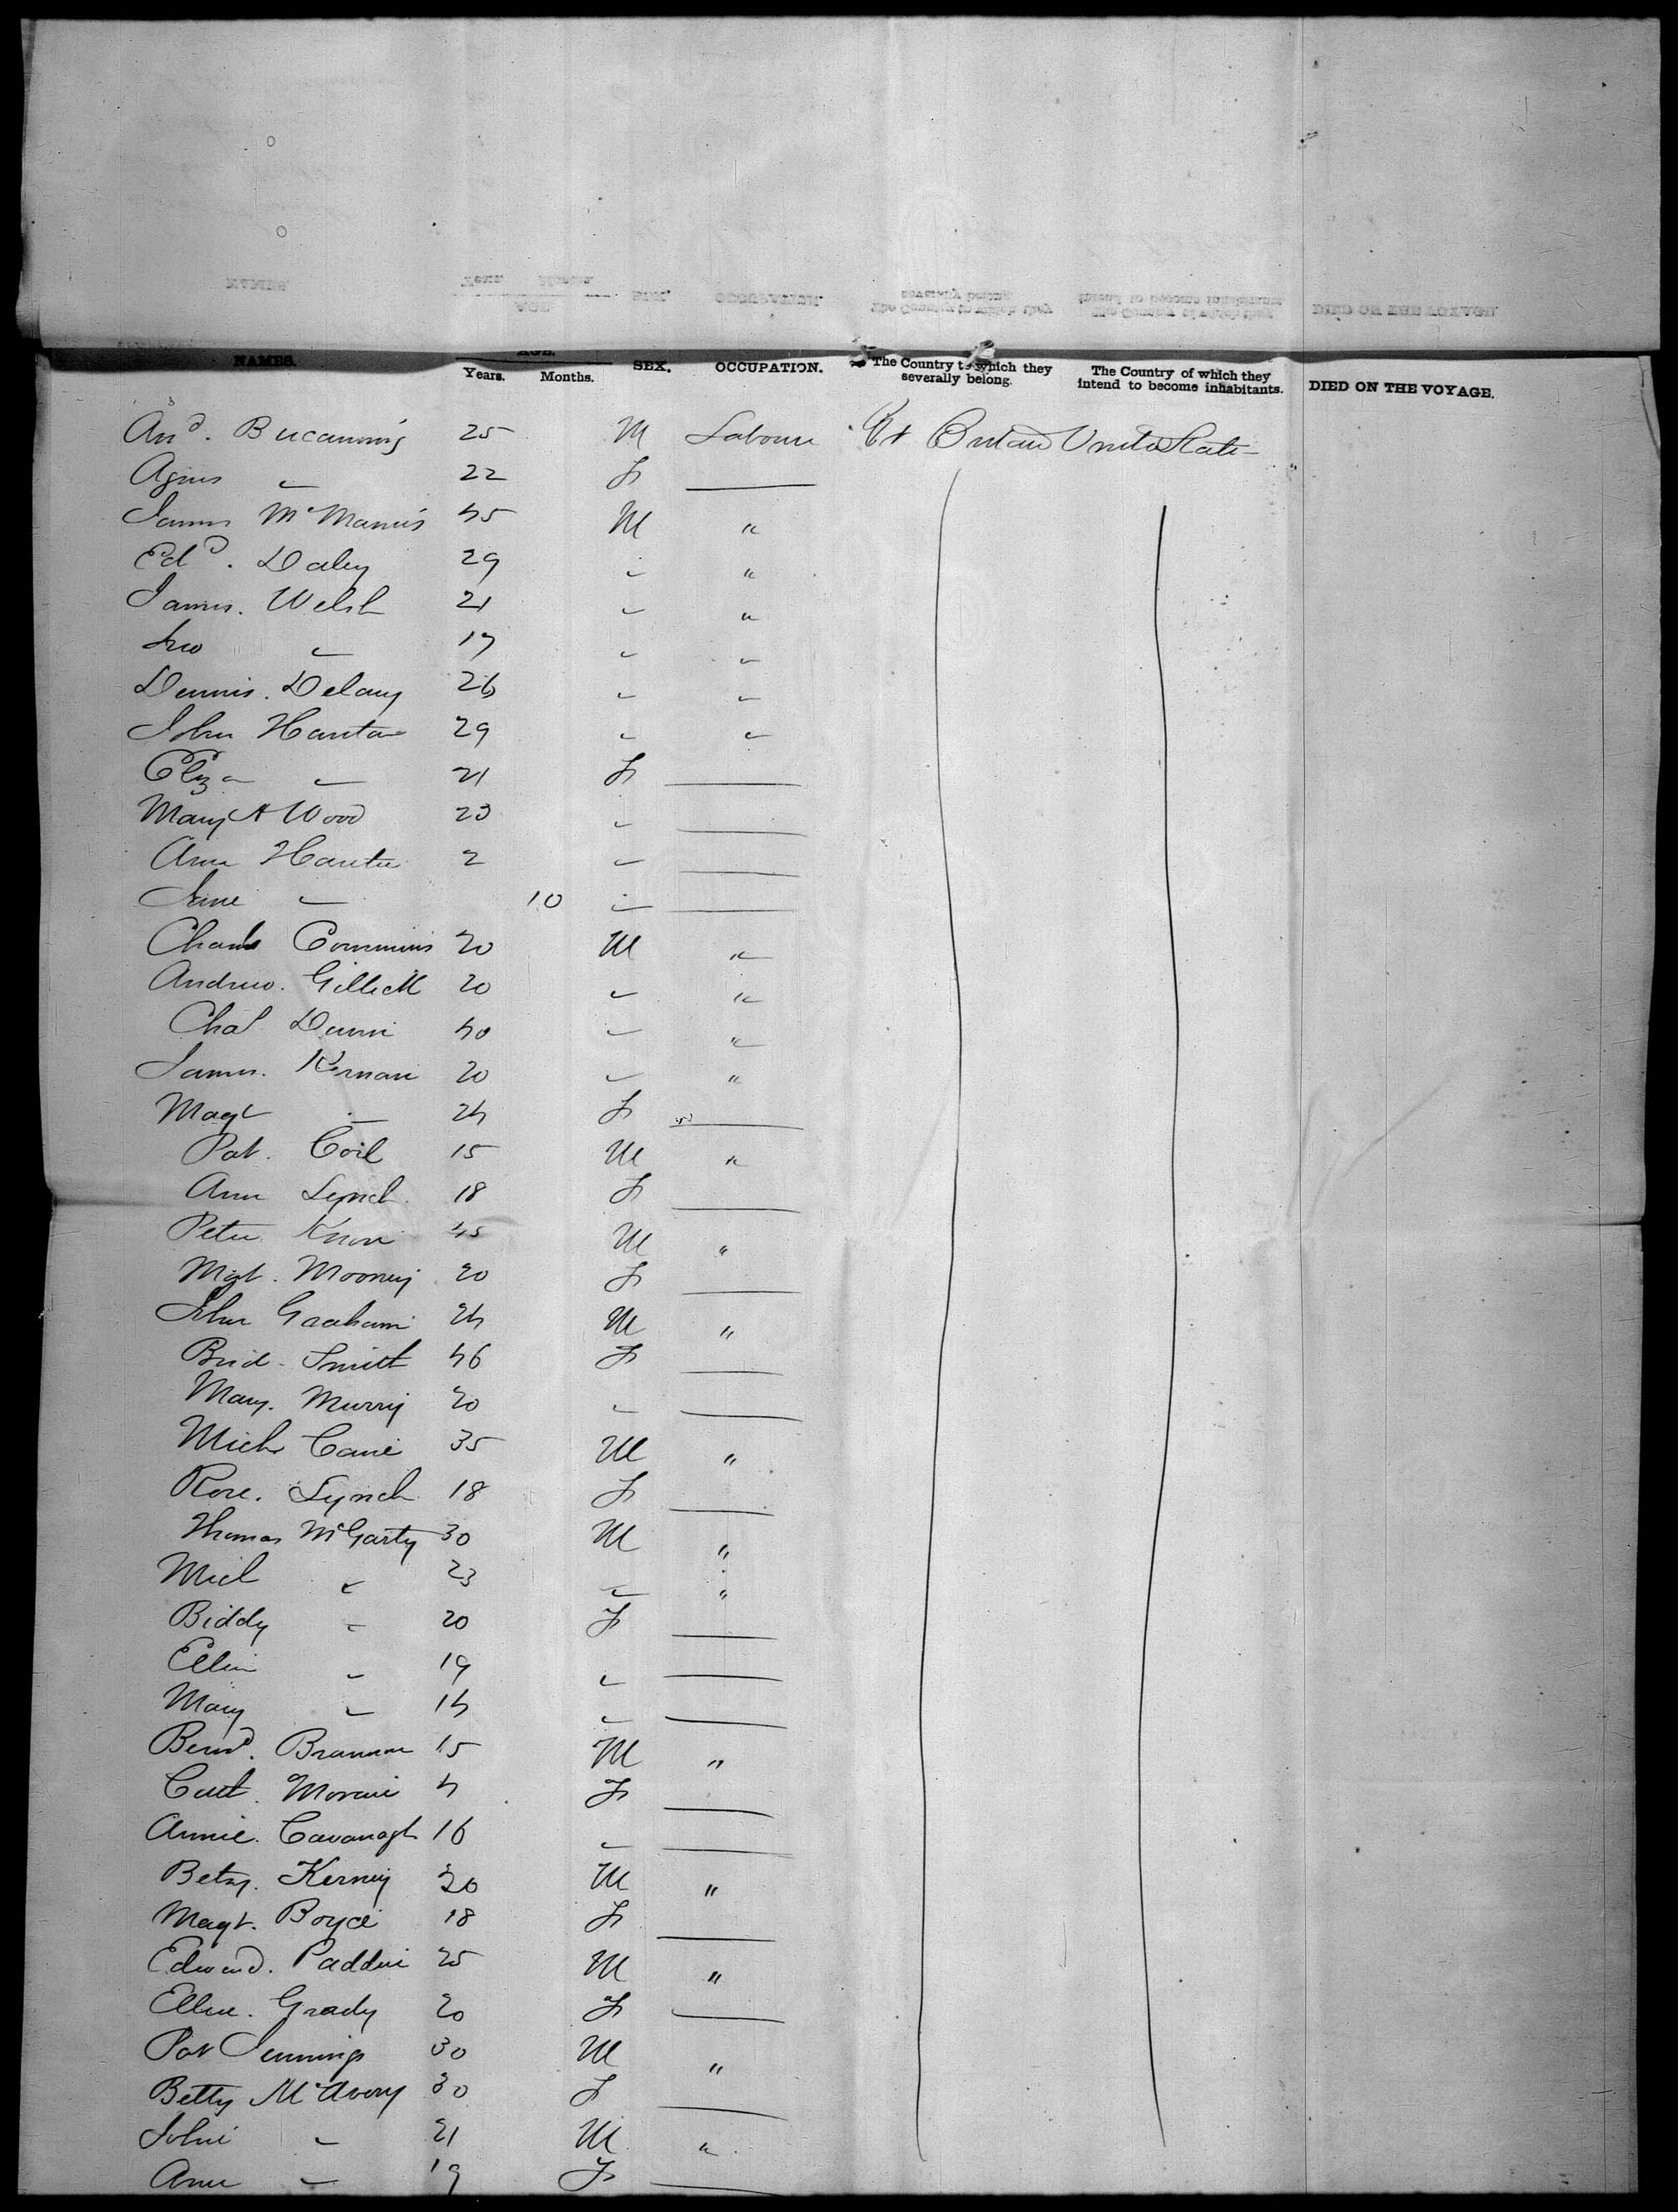 NAMES. AGE. Years. Months. SEX. OCCUPATION. The Country to which they severally belong. The Country of which they intend to become inhabitants. DIED ON THE VOYAGE.
And. 25 M Labourer Gt Britain United States
Agnes " 22 F —
James McManus 45 M "
Edd. Daley 29 " "
James. Welsh 21 " "
Jno " 17 " "
Dennis. Delany 26 " "
John Hunter 29 " "
Eliza " 21 F —
Mary A Wood 23 " —
Ann Hunter 2 " —
Jane " 10 " —
Charls Commins 20 M "
Andrew. 20 " "
Chas Dunn 40 " "
James. Kernan 20 " "
Magt " 24 F —
Pat. Coil 15 M "
Ann Lynch 18 F —
Peter 45 M "
Mgt. Mooney 20 F —
John Graham 24 M "
Brid. Smith 46 F —
Mary. Murry 20 " —
Mich Cane 35 M "
Rose. Lynch 18 F —
Thomas McGarty 30 M "
Mich " 23 " "
Biddy " 20 F —
Ellen " 19 " —
Mary " 14 " —
Bernd. Brannan 15 M "
Cath. Moran 4 F —
Annie. Cavanagh 16 " —
Betsy. Kerney 20 M "
Magt. Boyce 18 F —
Edward. Padden 25 M "
Ellen. Grady 20 F —
Pat Jennings 30 M "
Betty McAvoy 30 F —
John " 21 M "
Ann " 19 F —